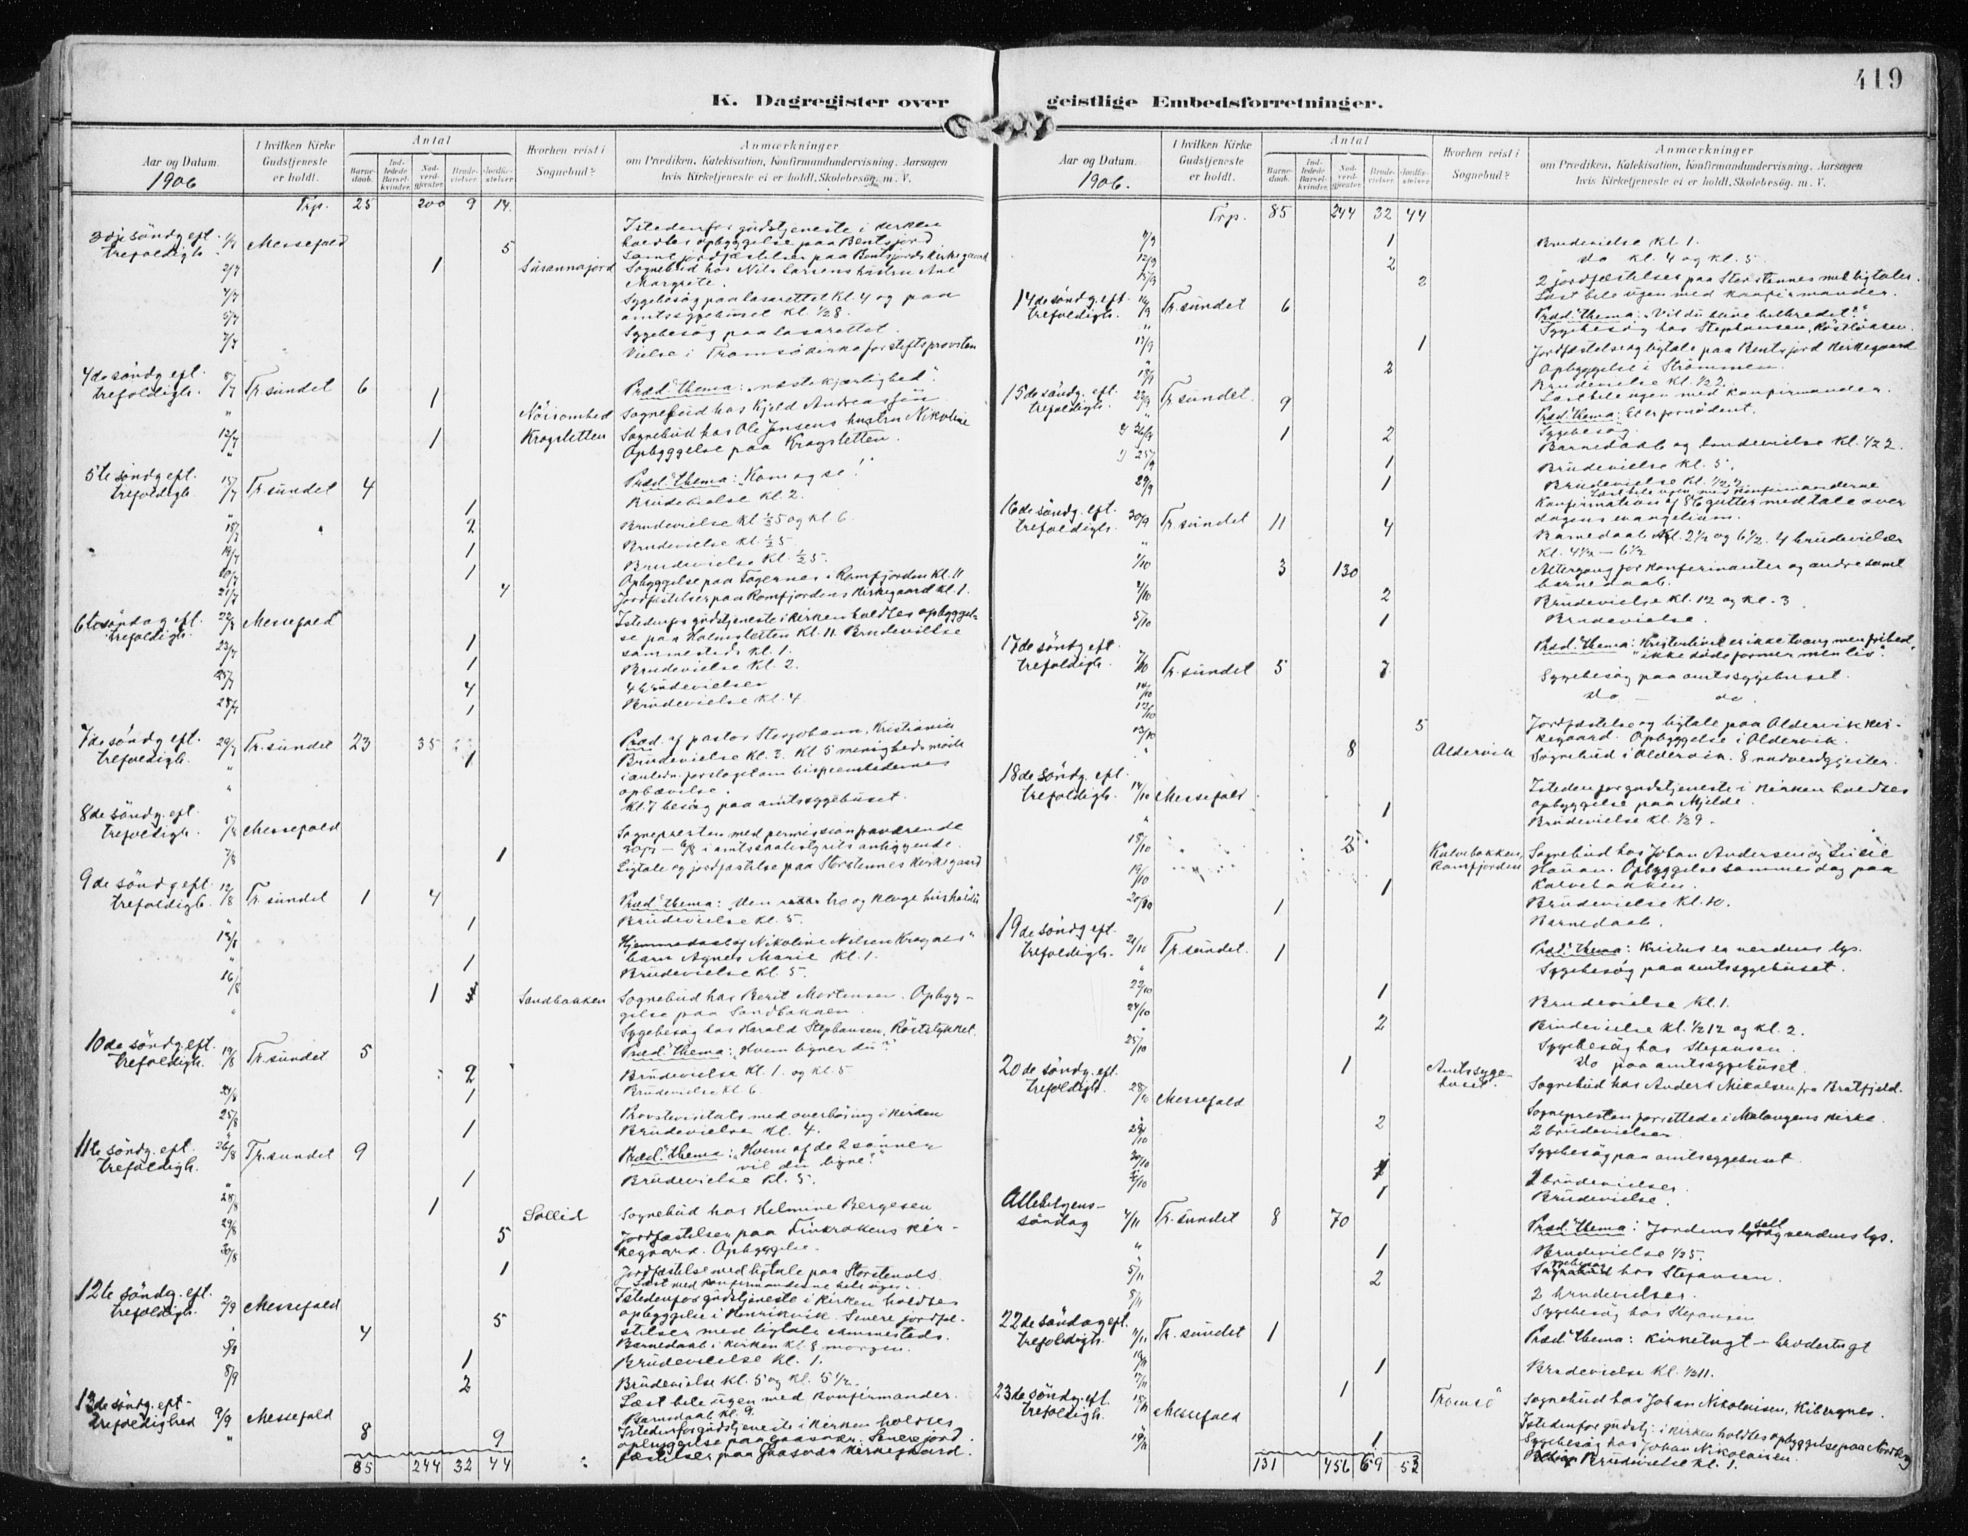 419
K. Dagregister over geistlige Embedsforretninger.
Aar og Datum.
1906
I hvilken Kirke Gudstjeneste er holdt.
Antal
Barne-daab.
Ind-ledede Barsel-kvinder.
Nad-verd-gjester.
Brude-vielser.
Jordfæ-stelser.
Hvorhen reist i Sognebud?
Anmærkninger
om Prædiken, Katekisation, Konfirmandundervisning, Aarsagen
hvis Kirketjeneste ei er holdt, Skolebesøg m. V.
Trp. 25 200 9 14.
Istedenfor gudstjeneste i kirken
3die søndg eft. trefoldigh. 1/7 Messefald holdtes opbyggelse paa Bentsjord
5 samt jordfæstelser paa Bentsjords kirkegaard
2/7 1 Susannajord Sognebud hos Nils Larsens hustru Ane
Margrete.
4/7 Sygebesøg paa lasarettet kl. 4 og paa
amtssygehuset kl. 1/2 8.
5/7 Sygebesøg paa lasarettet.
7/7 Vielse i Tromsø kirke for stiftsprovsten
4de søndg eft. trefoldigh. 8/7 Tr. sundet 6 Præd. thema: næstekjærlighed.
" 1 Nøisomhed Sognebud hos Kjeld Andreassen
12/7 1 Kragsletten Sognebud hos Ole Jensens hustru Nikoline
" Opbyggelse paa Kragsletten.
5te søndg eft. trefoldigh. 15/7 Tr. sundet 4 Præd. thema: Kom og se!
" 1 Brudevielse kl. 2.
18/7 2 Brudevielse kl 1/2 5 og kl 6.
19/7 1 Brudevielse kl. 1/2 5.
20/7 1 Brudevielse kl. 1/2 5.
21/7 4 Opbyggelse paa Fagernes i Ramfjorden kl. 11
Jordfæstelser paa Ramfjordens kirkegaard kl. 1.
6te søndag eft. trefoldigh. 22/7 Messefald Istedenfor gudstjeneste i kirken holdtes opbyggel-
se paa Holmesletten kl. 11. Brudevielse
23/7 1 sammesteds kl. 1.
1 Brudevielse kl. 2.
25/7 4 4 brudevielser
28/7 1 Brudevielse kl. 4
7de søndg eft. trefoldigh. 29/7 Tr. sundet 23 35 Præd. af pastor Storjohann, Kristiania
" 1 Brudevielse kl. 3. Kl 5 menighedsmøde
i anledn. forslaget om bispeembedernes
" ophævelse.
Kl 7 besøg paa amtssygehuset.
8de søndg eft. trefoldigh. 5/8 Messefald Sognepresten med permission fraværende
30/7 – 6/8 i amtsskolestyrets anliggende.
7/8 1 Ligtale og jordfæstelse paa Storstennes kirkegaard
9de søndg eft. trefoldigh. 12/8 Tr. sundet 1 4 Præd. thema: Den tro og kloge husholder
" 1 Brudevielse kl. 5.
15/8 Hjemmedaab af Nikoline Nielsen Kragnes
" 1 barn Agnes Marie kl. 1.
16/8 Brudevielse kl. 5.
1 Sandbakken Sognebud hos Berit Mortensen. Opbyg-
" gelse paa Sandbakken.
Sygebesøg hos Harald Stephansen, Røstlykket.
10de søndg eft. trefoldigh. 19/8 Tr. sundet 5 Præd. thema: Hvem ligner du?
2 Brudevielse kl. 1. og kl. 5
21/8 1 Brudevielse kl 6.
25/8 Provstevisitats med overhøring i kirken
" 1 Brudevielse kl. 4.
11te søndg. eft. trefoldigh. 26/8 Tr. sundet 9 Præd. thema: Hvem af de 2 sønner
vil du ligne?
" 1 Brudevielse kl. 5.
28/8 1 Sollid Sognebud hos Helmine Bergesen
29/8 5 Jordfæstelser paa Finkrokens kir-
30/8 kegaard. Opbyggelse.
1 Jordfæstelse med ligtale paa Storstennes
Læst med konfirmanderne hele ugen.
12te søndg. eft. trefoldigh. 2/9 Messefald Istedenfor gudstjeneste i kirken holdtes
5 opbyggelse i Henrikvik. Senere jordfæ-
4 stelser med ligtale sammesteds.
5/9 Barnedaab i kirken kl. 8 morgen.
1 Brudevielse kl. 1.
8/9 2 Brudevielse kl. 5 og kl. 5 1/2.
13de søndg. eft. trefoldighed 9/9 Messefald Læst hele ugen med konfirmander.
Barnedaab kl. 9.
" 8 9 Istedenfor gudstjeneste i kirken holdtes
opbyggelse paa Gaasvær. Senere jord-
fæstelser paa Gaasvær kirkegaard.
85 244 32 44
Aar og Datum.
1906.
I hvilken Kirke Gudstjeneste er holdt.
Antal
Barne-daab.
Ind-ledede Barsel-kvinder.
Nad-verd-gjester.
Brude-vielser.
Jordfæ-stelser.
Hvorhen reist i Sognebud?
Anmærkninger
om Prædiken, Katekisation, Konfirmandundervisning, Aarsagen
hvis Kirketjeneste ei er holdt, Skolebesøg m. V.
Trp. 85 244 32 44
1 Brudevielse kl. 1.
12/9 2 do kl. 4 og kl. 5
15/9 2 2 jordfæstelser paa Storstennes med ligtaler.
Læst hele ugen med konfirmander.
14de søndg eft. trefoldigh. 16/9 Tr. sundet 6 Præd. thema: Vil du blive helbredet?
" Sygebesøg hos Stephansen, Røstlykken.
17/9 1 Jordfæstelse og ligtale paa Bentsjord kirkegaard
" Opbyggelse i Strømmen.
2 Brudevielse kl. 1/2 2.
Læst hele ugen med konfirmander.
15de søndg. eft. trefoldigh. 23/9 Tr. sundet. 9 Præd. thema: Et er fornødent.
" Sygebesøg.
1 2 Barnedaab og brudevielse kl. 1/2 2.
25/9 1 Brudevielse kl. 5.
29/9 1 Brudevielse kl. 1/2 2.
Læst hele ugen med konfirmanderne
16de søndg. eft. trefoldigh. 30/9 Tr. sundet 11 4 Konfirmation af 86 gutter med tale over
dagens evangelium.
" Barnedaab kl. 2 1/2 og 6 1/2. 4 brudevielser
kl. 4 1/2 – 6 1/2
1/10 3 130 Altergang for konfirmanter og andre samt
barnedaab.
2/10 2 Brudevielse kl. 12 og kl. 3.
5/10 1 Brudevielse.
17de søndg eft. trefoldigh. 7/10 Tr. sundet 5 7 Præd. thema: Kristenlivet er ikke tvang men frihed,
"ikke døde former men liv".
Sygebesøg paa amtssygehuset.
12/10 do – do
13/10 5 Jordfæstelse og ligtale paa Aldervik kir-
kegaard. Opbyggelse i Aldervik.
" 8 Aldervik Sognebud i Aldervik. 8 nadverdgjester.
18de søndg. eft. trefoldigh. 14/10 Messefald Istedenfor gudstjeneste i kirken holdtes
opbyggelse paa Mjelde.
" 1 Brudevielse kl. 1/2 9.
18/10 2 Kalvebakken, Ramfjorden Sognebud hos Johan Andersen og Lucie
19/10 Hansen. Opbyggelse samme dag paa
Kalvebakken.
1 Brudevielse kl. 10.
20/10 1 Barnedaab.
19de søndg eft. trefoldigh. 21/10 Tr. sundet. 1 Præd. thema: Kristus er verdens lys.
" Sygebesøg paa amtssygehuset.
22/10 1 Brudevielse kl. 1.
24/10 2 Brudevielse kl. 1/2 12 og kl. 2.
" Sygebesøg hos Stefansen.
25/10 do paa amtssygehuset
1 Amtssyge-huset. Sognebud hos Anders Nikolaisen fra Bratfjeld.
20de søndg. eft. trefoldigh. 28/10 Messefald Sognepresten forrettede i Malangens kirke.
29/10 2 2 brudevielser
30/10 Sygebesøg paa amtssygehuset.
brudevielser.
1 Brudevielse.
Allehelgens-søndag 4/11 Tr. sundet 8 70 Præd. thema: Jordens salt og verdens lys.
" 1 Brudevielse 1/2 5.
5/11 Sygebesøg hos Stefansen.
2 2 brudevielser.
8/11 Sygebesøg hos Stefansen
22de søndag eft. trefoldigh. 11/11 Tr. sundet 1 Præd. thema: Kirketugt – brodertugt
1 Brudevielse kl. 1/2 11.
17/11 1 Tromsø Sognebud hos Johan Nikolaisen, Kibergnes.
23de søndg. eft. trefoldigh. 18/11 Messefald Istedenfor gudstj. i kirken holdtes opbyggelse paa
Sygebesøg hos Johan Nikolaisen.
19/11 1 Brudevielse kl. 1.
131 456 69 53